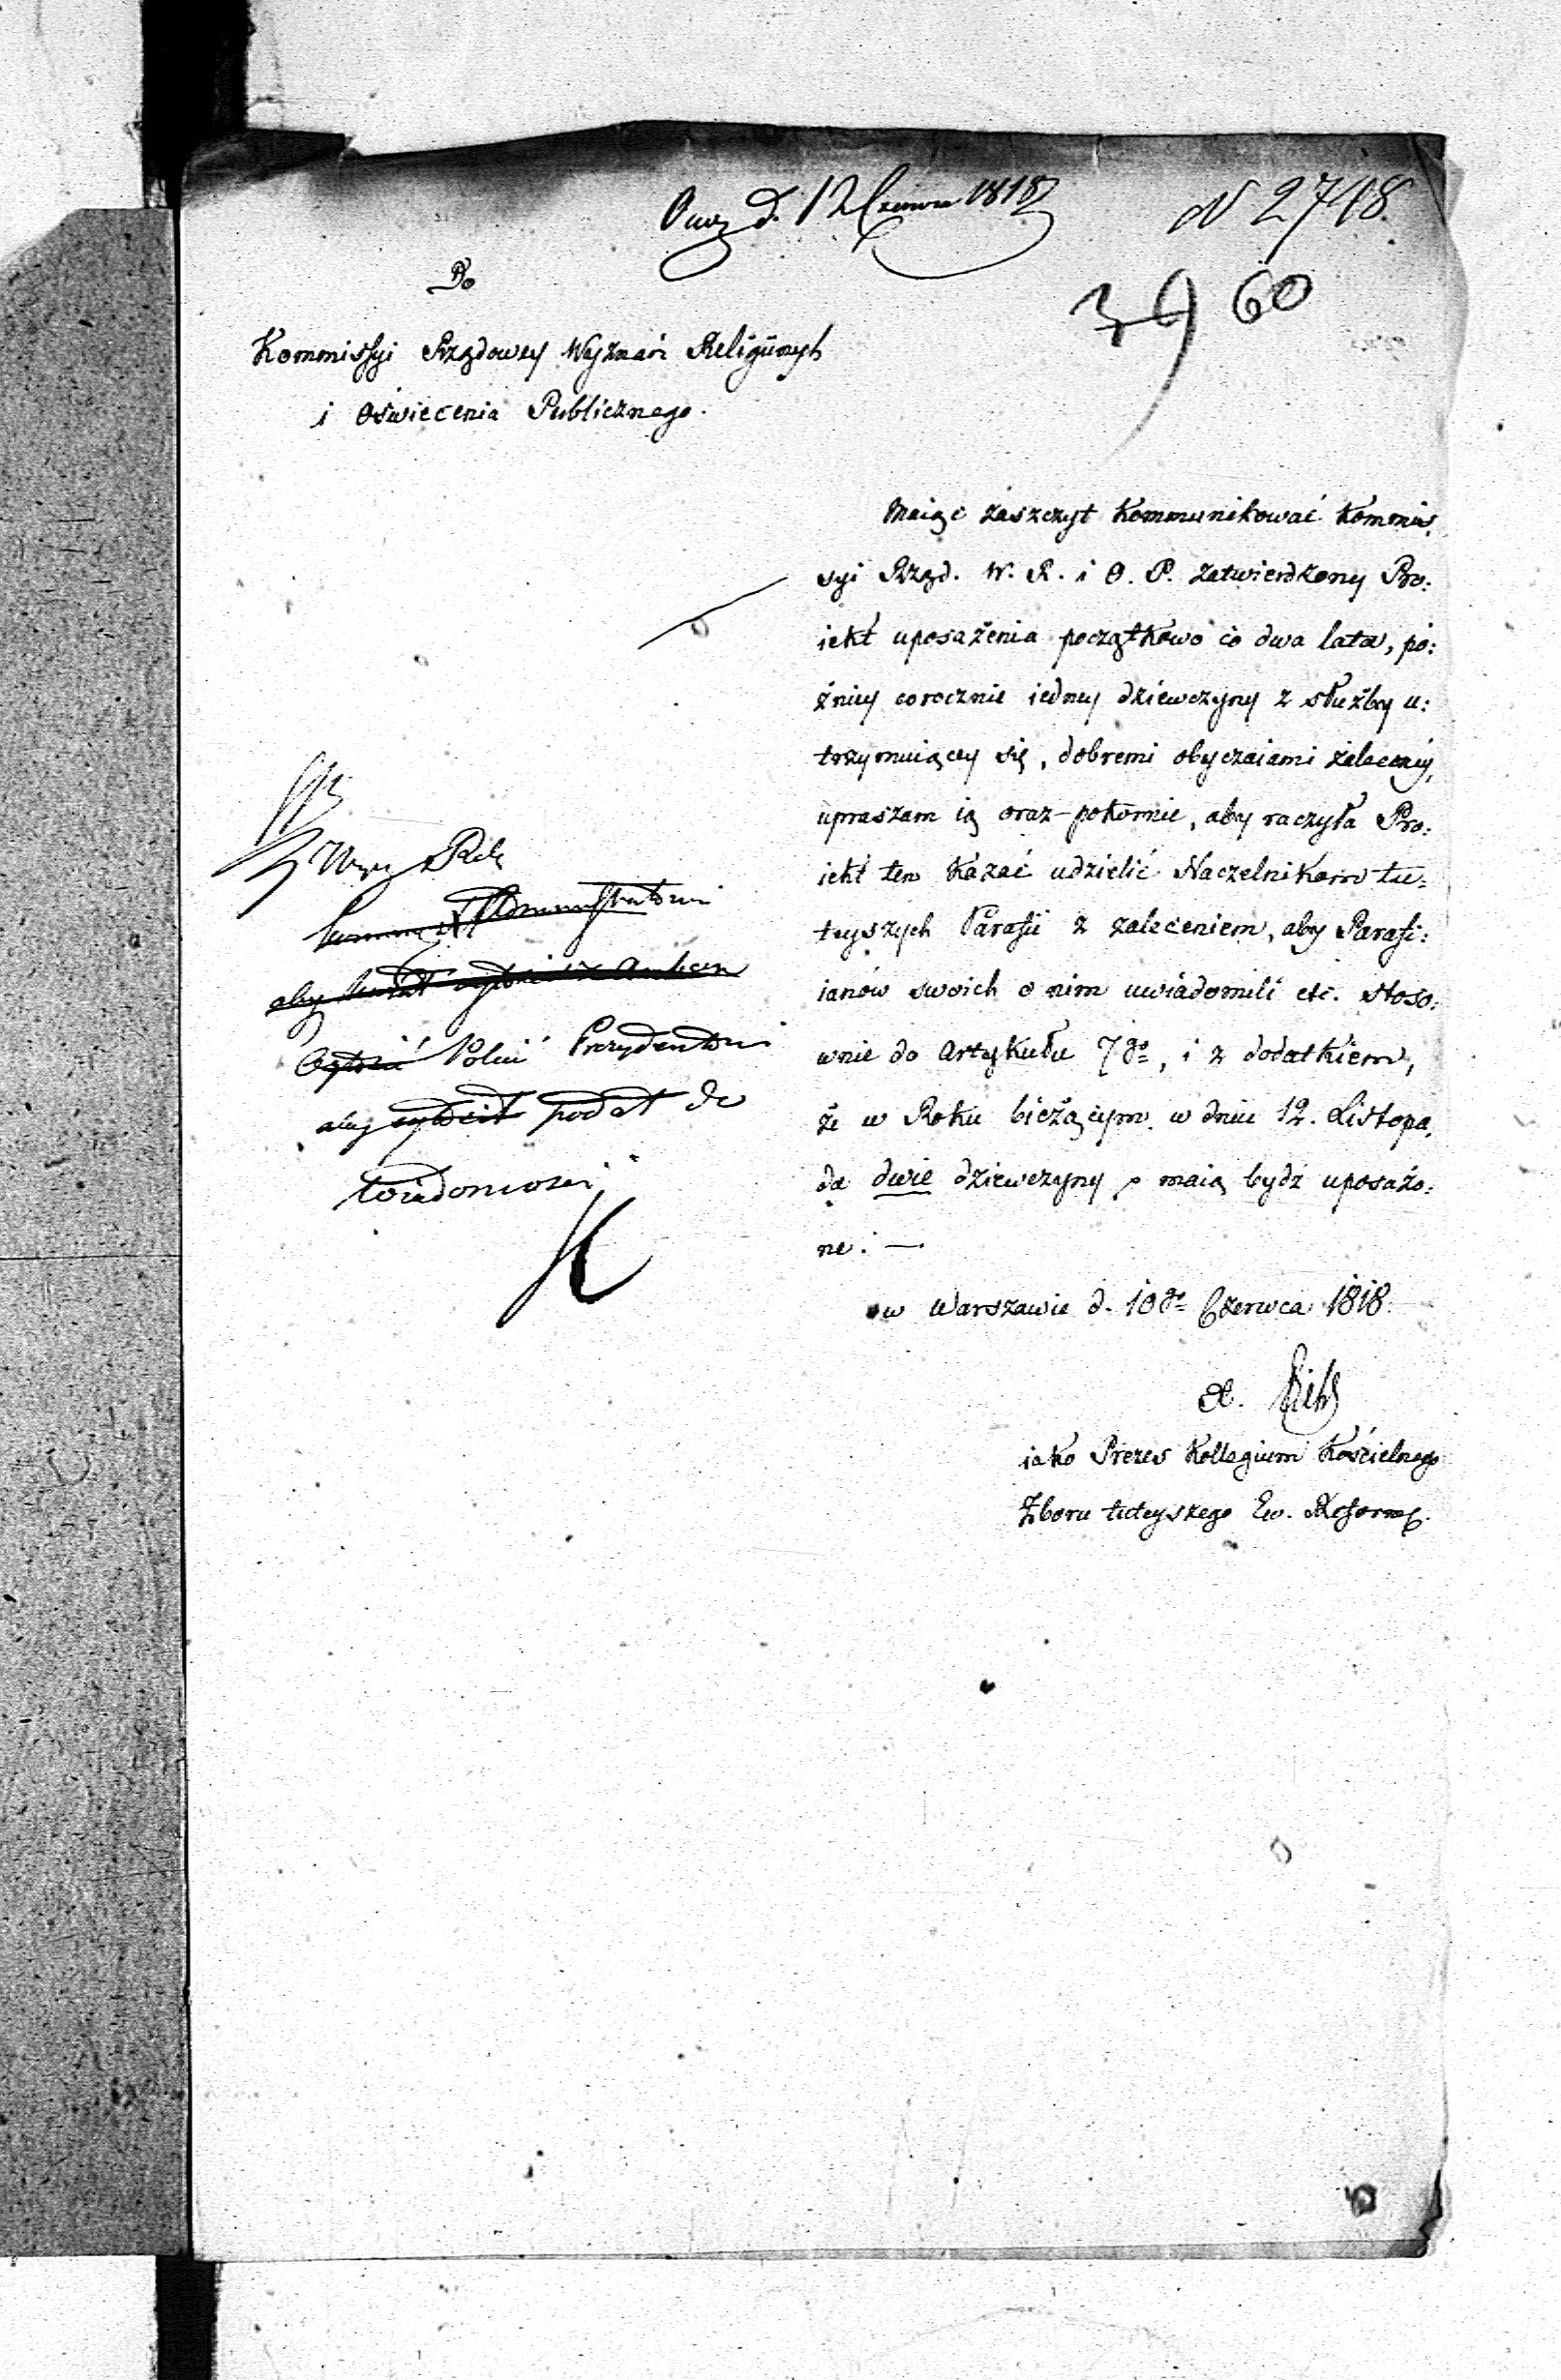 d. 12 Czerwca 1818
N 2718.
3960
Do
Kommissyi Rządowey Wyznań Religijnych
i Oświecenia Publicznego.
Maiąc zaszczyt kommunikować Kommis,
syi Rząd. W. R. i O. P. zatwierdzony Pro:
iekt uposażenia początkowo co dwa lata, pó:
źniey corocznie iedney dziewczyny z służby u:
trzymuiącey się, dobremi obyczaiami zaleconey,
upraszam ią oraz pokornie, aby raczyła Pro:
iekt ten kazać udzielić Naczelnikom tu=
teyszych Parafii z zaleceniem, aby Parafi:
ianów swoich o nim uwiadomili etc. stoso:
wnie do Artykułu 7go, i z dodatkiem,
że w Roku bieżącym w dniu 12. Listopa,
da dwie dziewczyny maią bydź uposażo:
ne. —
w Warszawie d. 10go Czerwca 1818.
iako Prezes Kollegium Kościelnego
Zboru tuteyszego Ew. Reform.
Administratorowi
aby
Ogłosić Polecić Prezydentowi
aby ogłosił podał do
wiadomości